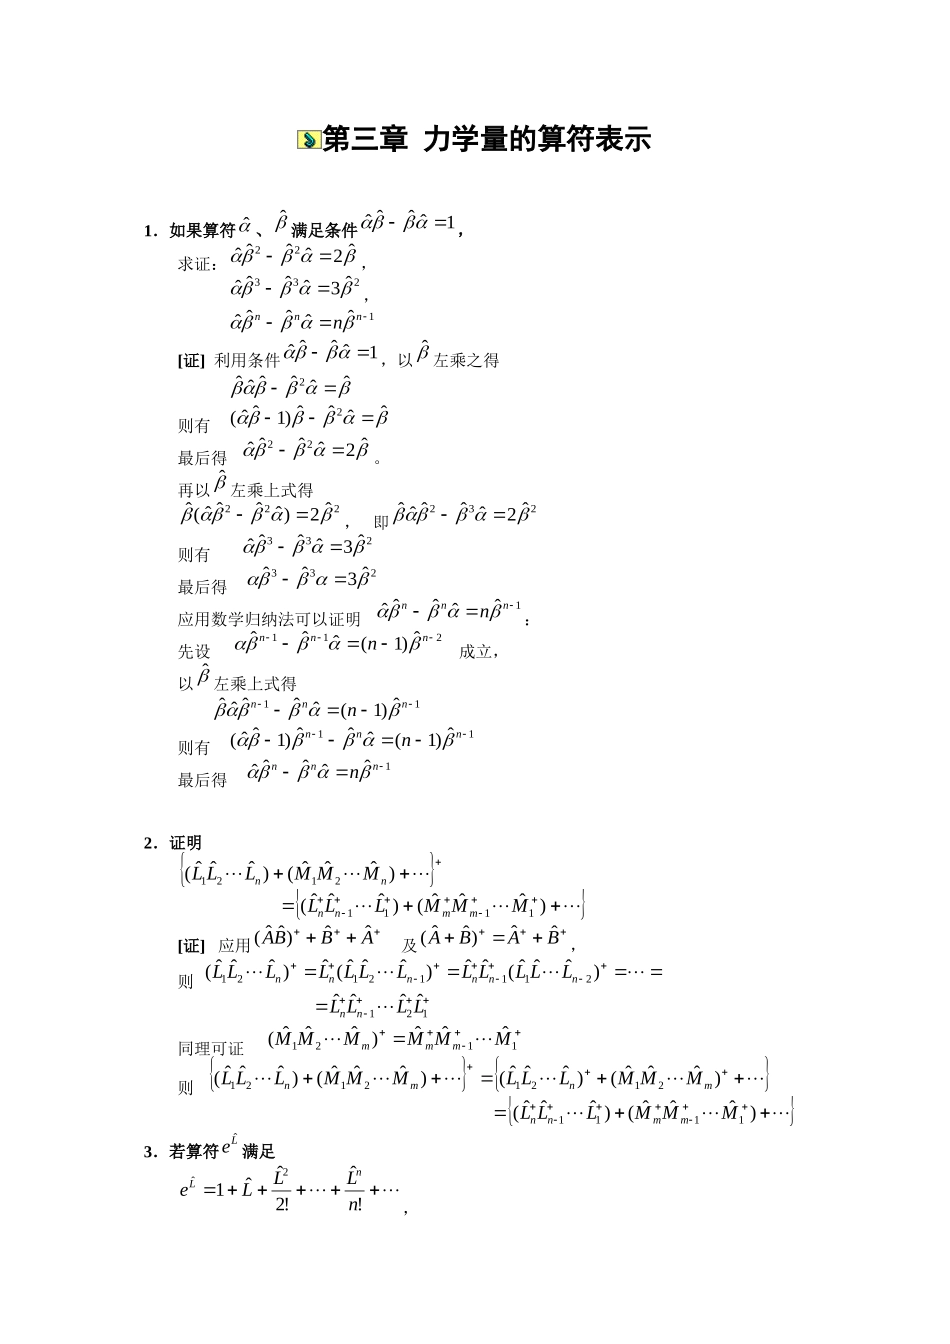 第三章 力学量的算符表示
1．如果算符α̂、β̂满足条件α̂β̂ − β̂α̂ = 1，
求证：α̂β̂² − β̂²α̂ = 2β̂，
α̂β̂³ − β̂³α̂ = 3β̂²，
α̂β̂ⁿ − β̂ⁿα̂ = nβ̂ⁿ⁻¹
[证] 利用条件α̂β̂ − β̂α̂ = 1，以β̂左乘之得
β̂α̂β̂ − β̂²α̂ = β̂
则有 (α̂β̂ − 1)β̂ − β̂²α̂ = β̂
最后得 α̂β̂² − β̂²α̂ = 2β̂。
再以β̂左乘上式得
β̂(α̂β̂² − β̂²α̂) = 2β̂²， 即β̂α̂β̂² − β̂³α̂ = 2β̂²
则有 α̂β̂³ − β̂³α̂ = 3β̂²
最后得 αβ̂³ − β̂³α = 3β̂²
应用数学归纳法可以证明 α̂β̂ⁿ − β̂ⁿα̂ = nβ̂ⁿ⁻¹：
先设 αβ̂ⁿ⁻¹ − β̂ⁿ⁻¹α̂ = (n − 1)β̂ⁿ⁻² 成立，
以β̂左乘上式得
β̂α̂β̂ⁿ⁻¹ − β̂ⁿα̂ = (n − 1)β̂ⁿ⁻¹
则有 (α̂β̂ − 1)β̂ⁿ⁻¹ − β̂ⁿα̂ = (n − 1)β̂ⁿ⁻¹
最后得 α̂β̂ⁿ − β̂ⁿα̂ = nβ̂ⁿ⁻¹
2．证明
{(L̂₁L̂₂⋯L̂ₙ) + (M̂₁M̂₂⋯M̂ₙ) + ⋯}⁺
= {(L̂ₙ⁺L̂ₙ₋₁⁺⋯L̂₁⁺) + (M̂ₘ⁺M̂ₘ₋₁⁺⋯M̂₁⁺) + ⋯}
[证] 应用(ÂB̂)⁺ = B̂⁺Â⁺ 及(Â + B̂)⁺ = Â⁺ + B̂⁺，
则 (L̂₁L̂₂⋯L̂ₙ)⁺ = L̂ₙ⁺(L̂₁L̂₂⋯L̂ₙ₋₁)⁺ = L̂ₙ⁺L̂ₙ₋₁⁺(L̂₁L̂⋯L̂ₙ₋₂)⁺ = ⋯ =
= L̂ₙ⁺L̂ₙ₋₁⁺⋯L̂₂⁺L̂₁⁺
同理可证 (M̂₁M̂₂⋯M̂ₘ)⁺ = M̂ₘ⁺M̂ₘ₋₁⁺⋯M̂₁⁺
则 {(L̂₁L̂₂⋯L̂ₙ) + (M̂₁M̂₂⋯M̂ₘ) + ⋯}⁺ = {(L̂₁L̂₂⋯L̂ₙ)⁺ + (M̂₁M̂₂⋯M̂ₘ)⁺ + ⋯}
= {(L̂ₙ⁺L̂ₙ₋₁⁺⋯L̂₁⁺) + (M̂ₘ⁺M̂ₘ₋₁⁺⋯M̂₁⁺) + ⋯}
3．若算符e^L̂满足
e^L̂ = 1 + L̂ + L̂²/2! + ⋯ + L̂ⁿ/n! + ⋯，